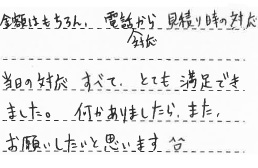 金額はもちろん、電話から見積り時の対応
対応
当日の対応 すべて、とても満足でき
ました。何かありましたら、また、
お願いしたいと思います^^